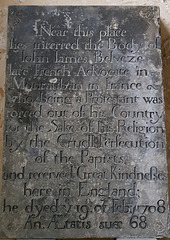 Near this place
lies interred the Body of
Iohn Iames Belveze
late French Advocate in
in France
who being a Protestant was
forced out of his Country
for the Sake of his Religion
by the Cruell Persecution
of the Papists,
and received Great Kindneses
here in England;
he dyed of 1708
An. Ætatis suæ 68